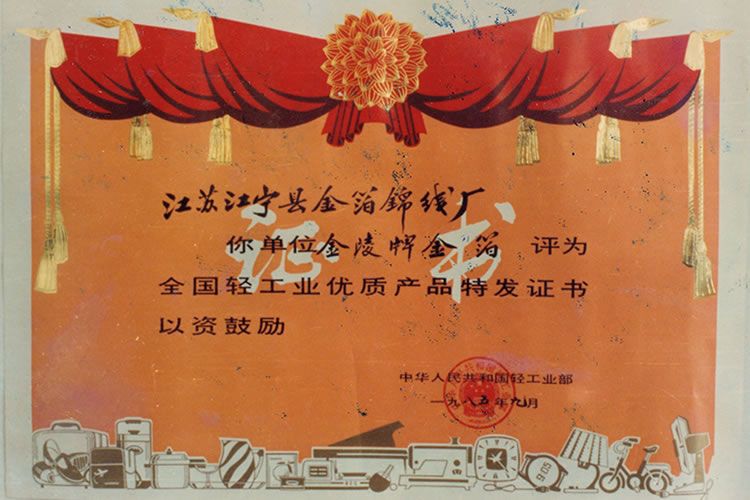 证书
江苏江宁县金箔錦线厂
你单位金陵牌金箔 评为
全国轻工业优质产品特发证书
以资鼓励
中华人民共和国轻工业部
一九八五年九月
9:05